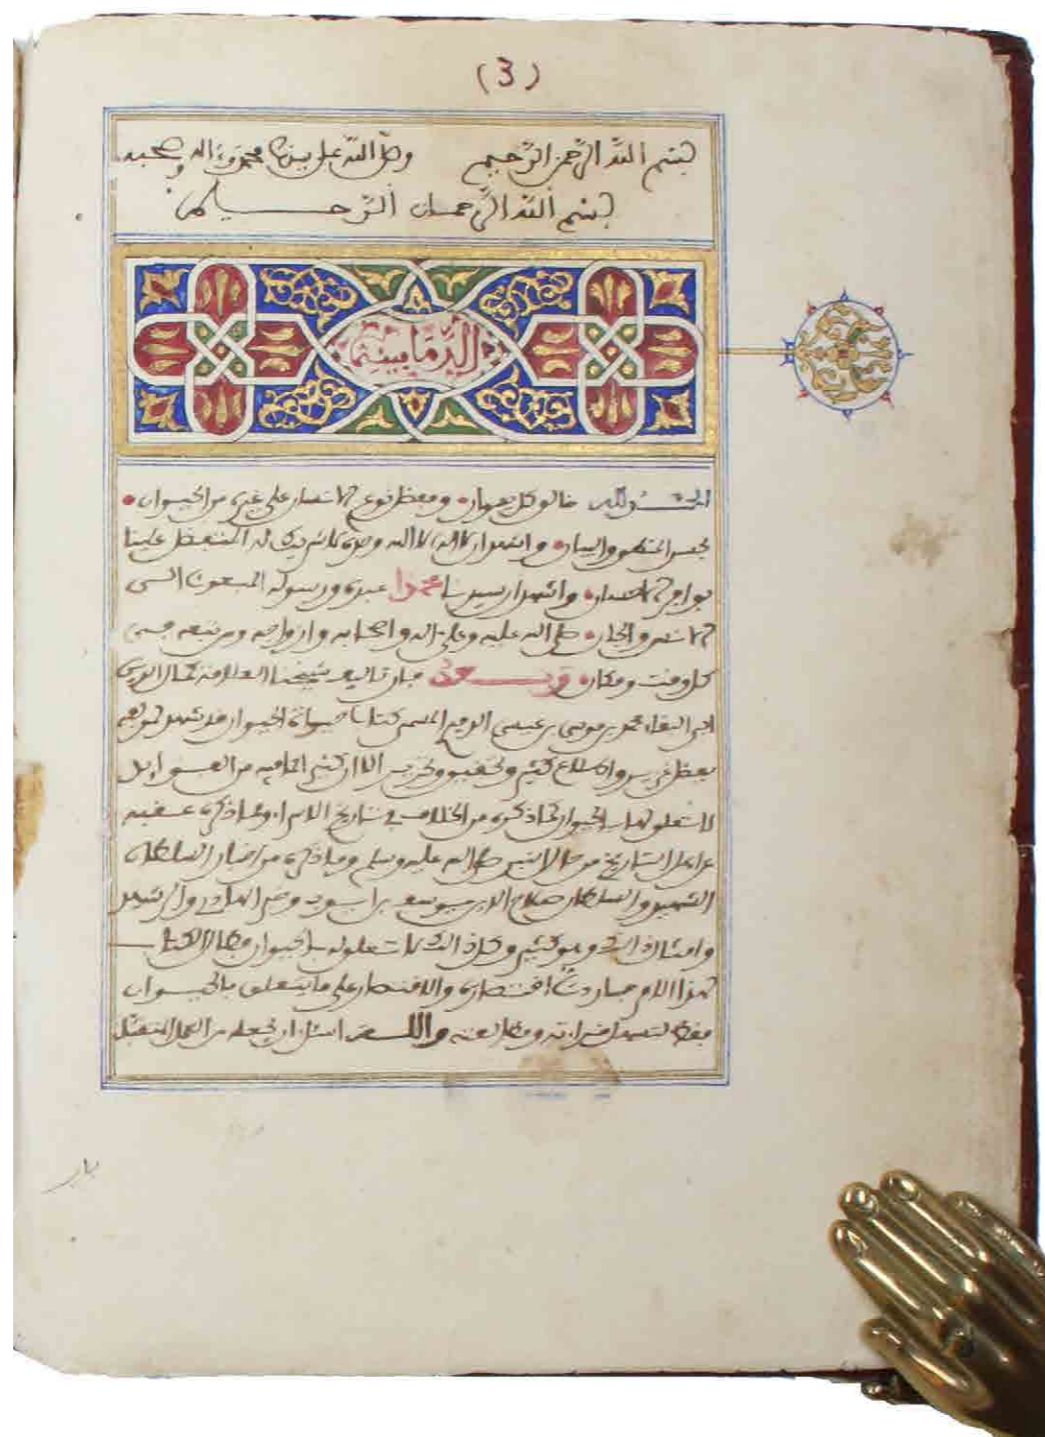 (3)
بسم الله الرحمن الرحيم وصلى الله على سيدنا محمد وءاله وصحبه
بسم الله الرحمان الرحيم
الدمامينى
الحمد لله خالق كل حيوان ومفضل نوع الانسان على غيره من الحيوان
بحسن المنطق والبيان واشهد ان لا اله الا الله وحده لا شريك له المتفضل علينا
الاحسان واشهد ان سيدنا محمدا عبده ورسوله المبعوث الى
الانس والجان صلى الله عليه وعلى اله واصحابه وازواجه ومن تبعه في
كل وقت ومكان وبعد فان تاليف شيخنا العلامة كمال الدين
ابى البقاء محمد بن موسى بن عيسى الدميرى المسمى كتاب حياة الحيوان قد
واطلاع كثير وتحقيق وتحرير الا ان كثير من الفوائد
لا تتعلق بالحيوان كما ذكره من الخلاف في تاريخ
من اهل التاريخ من حال النبي صلى الله عليه وسلم وما ذكره من اخبار السلطان
الشهيد والسلطان صلاح الدين يوسف بن ايوب
وامثال ذلك وهو كثير وكل ذلك لا تعلق له بالحيوان الكتاب
بهذا فاردت اختصاره والاقتصار على ما يتعلق بالحيوان
فقط لتسهل قراءته ومطالعته والله اسئل ان يجعله من العمل المتقبل